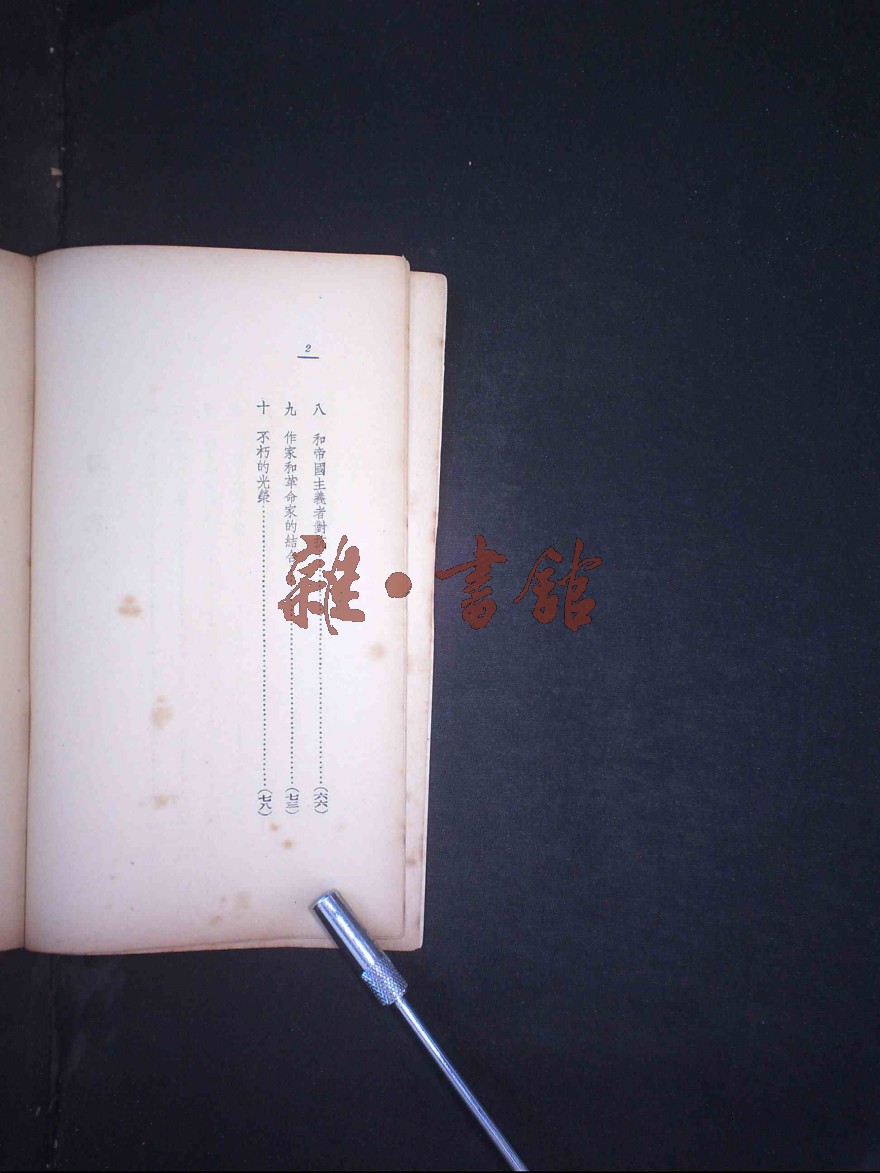 2
八 和帝國主義者對…………(六六)
九 作家和革命家的結合…………(七三)
十 不朽的光榮…………(七八)
雜・書館